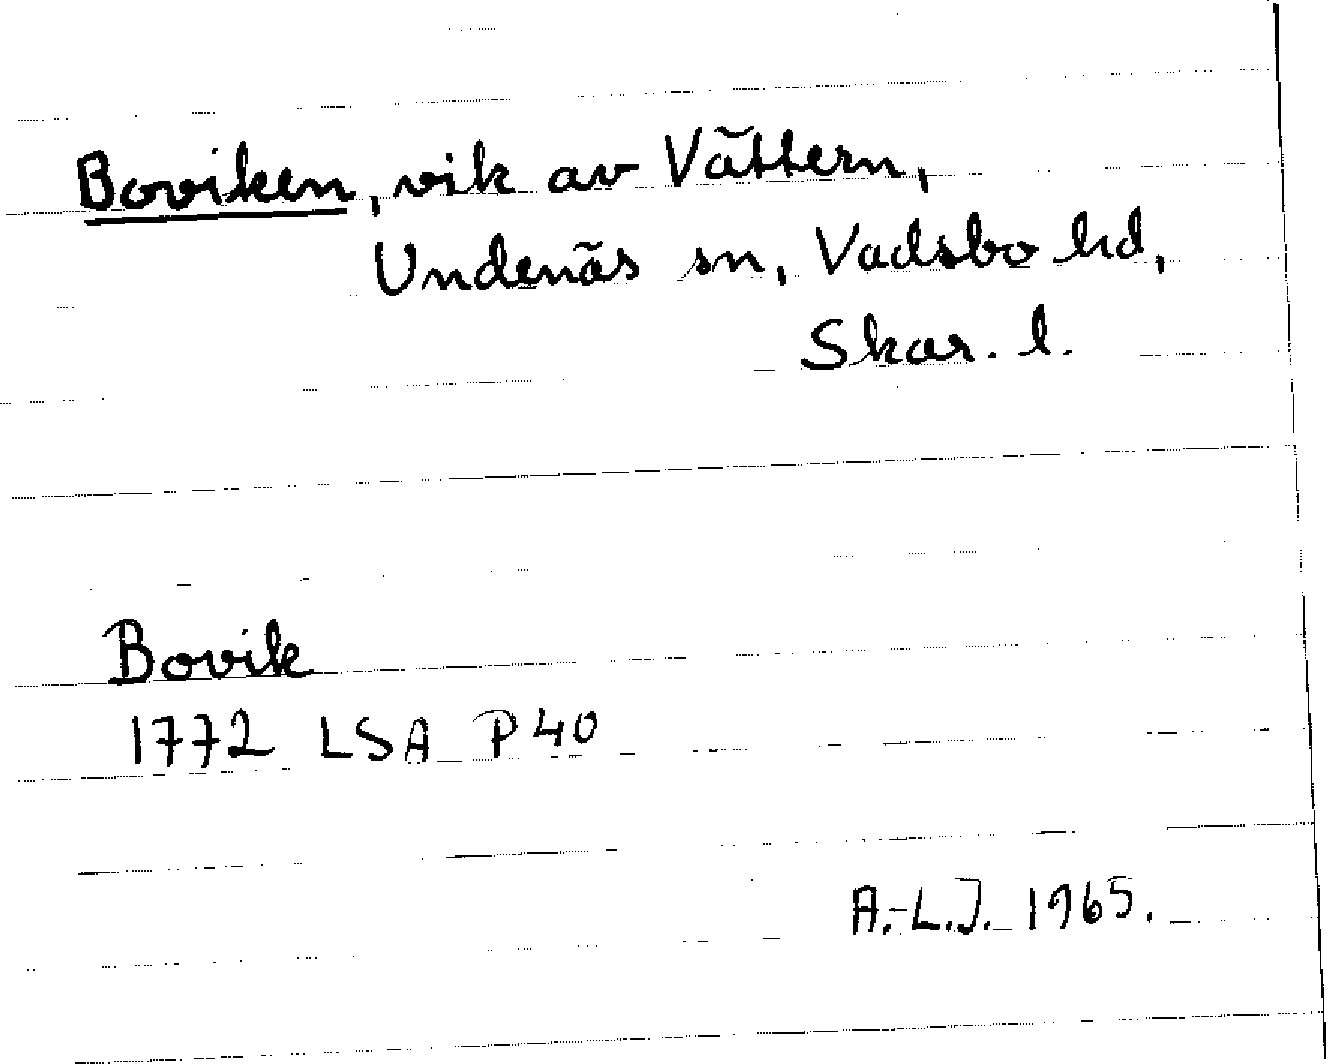 Boviken, vik av Vättern,
Undenäs sn, Vadsbo hd,
Skar. l.
Bovik
1772 LSA P 40
A.-L.J. 1965.